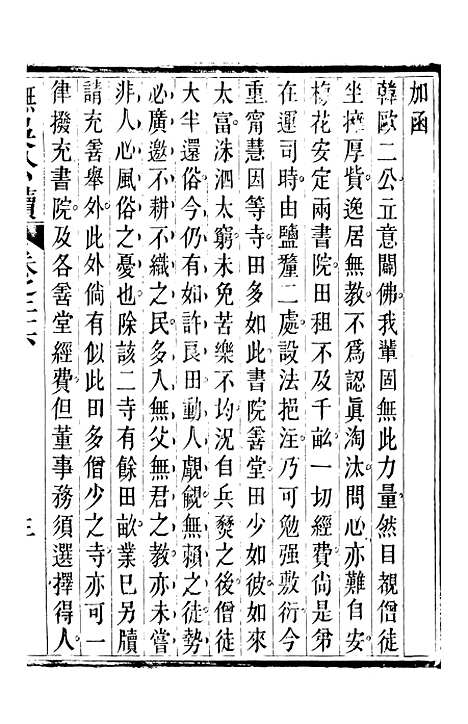 加函
韓歐二公立意闢佛我輩固無此力量然目覩僧徒
坐擁厚貲逸居無教不爲認眞淘汰問心亦難自安
梅花安定兩書院田租不及千畝一切經費尙是第
在運司時由鹽釐二處設法挹注乃可勉强敷衍今
重甯慧因等寺田多如此書院善堂田少如彼如來
太富洙泗太窮未免苦樂不均況自兵燹之後僧徒
大半還俗今仍有如許良田動人覬覦無賴之徒勢
必廣邀不耕不織之民多入無父無君之教亦未嘗
非人心風俗之憂也除該二寺有餘田畝業已另牘
請充善舉外此外倘有似此田多僧少之寺亦可一
律撥充書院及各善堂經費但董事務須選擇得人
撫吳公牘 卷之二六 三